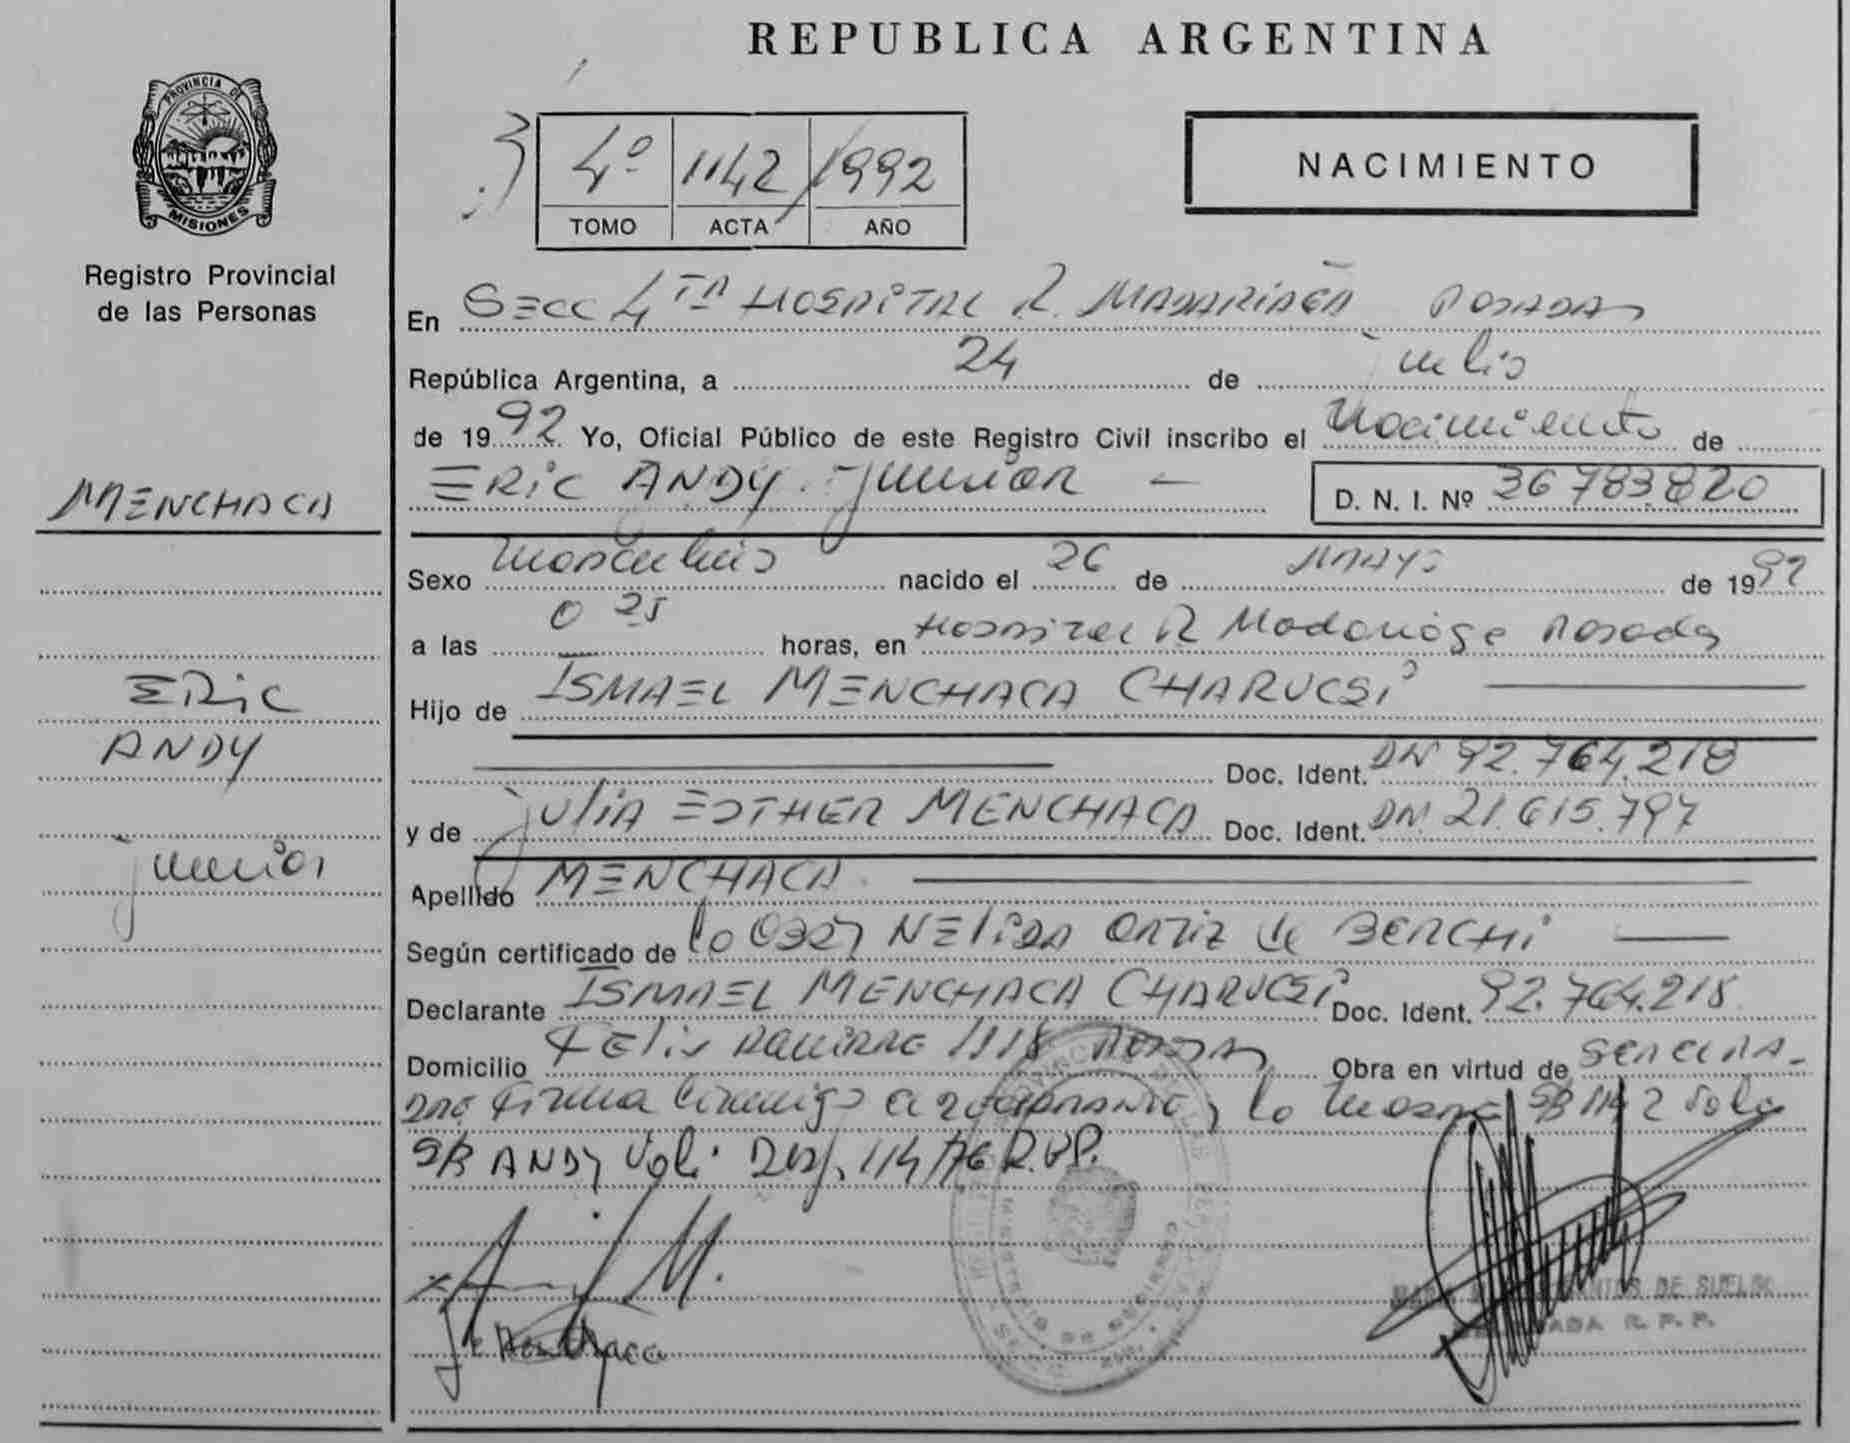 REPUBLICA ARGENTINA
PROVINCIA DE
MISIONES
Registro Provincial
de las Personas
4º 1142 1992
TOMO ACTA AÑO
NACIMIENTO
En Secc 4TA HOSPITAL R. MADARIAGA POSADAS
República Argentina, a 24 de julio
de 1992 Yo, Oficial Público de este Registro Civil inscribo el Nacimiento de
MENCHACA
ERIC ANDY junior — D. N. I. Nº 36 783.820
Sexo Masculino nacido el 26 de MAYO de 1992
a las 0 25 horas, en Hospital R Madariaga Posadas
Hijo de ISMAEL MENCHACA CHARUCSI
ERIC
ANDY
junior
Doc. Ident. DN 92.764.218
y de julia ESTHER MENCHACA Doc. Ident. DN. 21.615.797
Apellido MENCHACA
Según certificado de la Obst NELIDA ORTIZ de BERCHI
Declarante ISMAEL MENCHACA CHARUCSI Doc. Ident. 92.764.218
Domicilio Felix Aguirre 1918 Posadas Obra en virtud de
firma conmigo el y la S/R 1142 Vale
S/R ANDY Vale Disp. 114/76 R.P.P.
Menchaca
DE SUELDO
R. P. P.